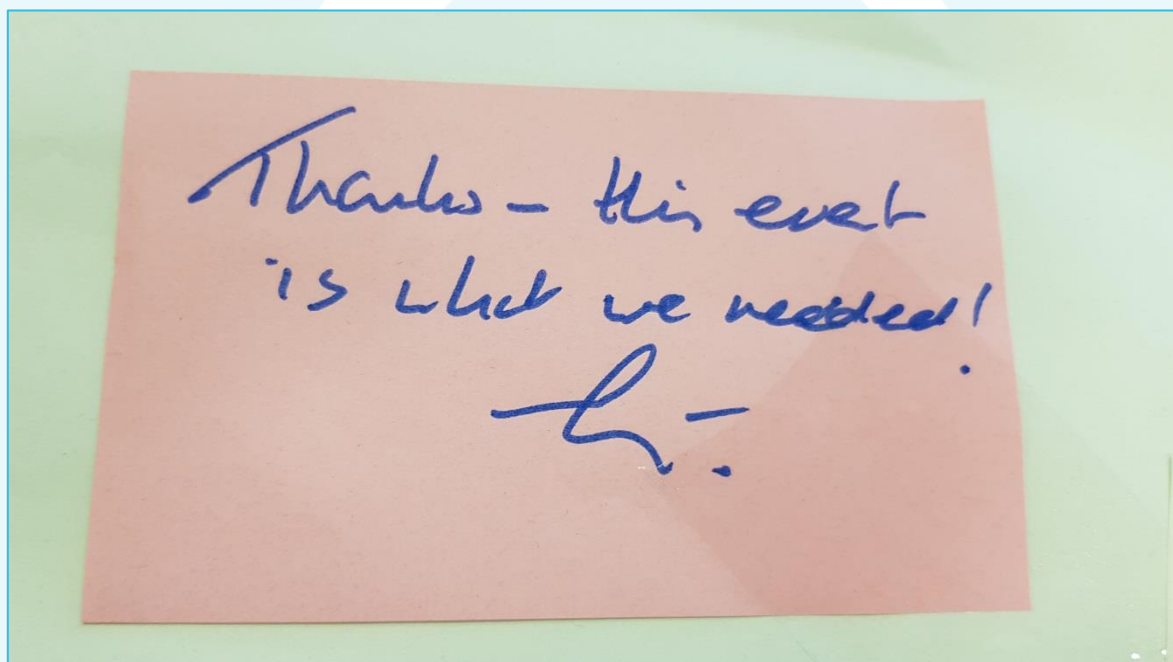 Thanks – this event
is what we needed!